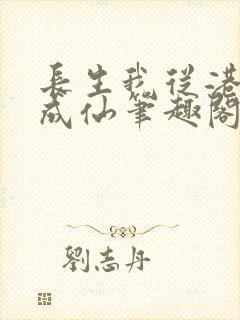 長生我從港
成仙筆趣閣
劉志丹